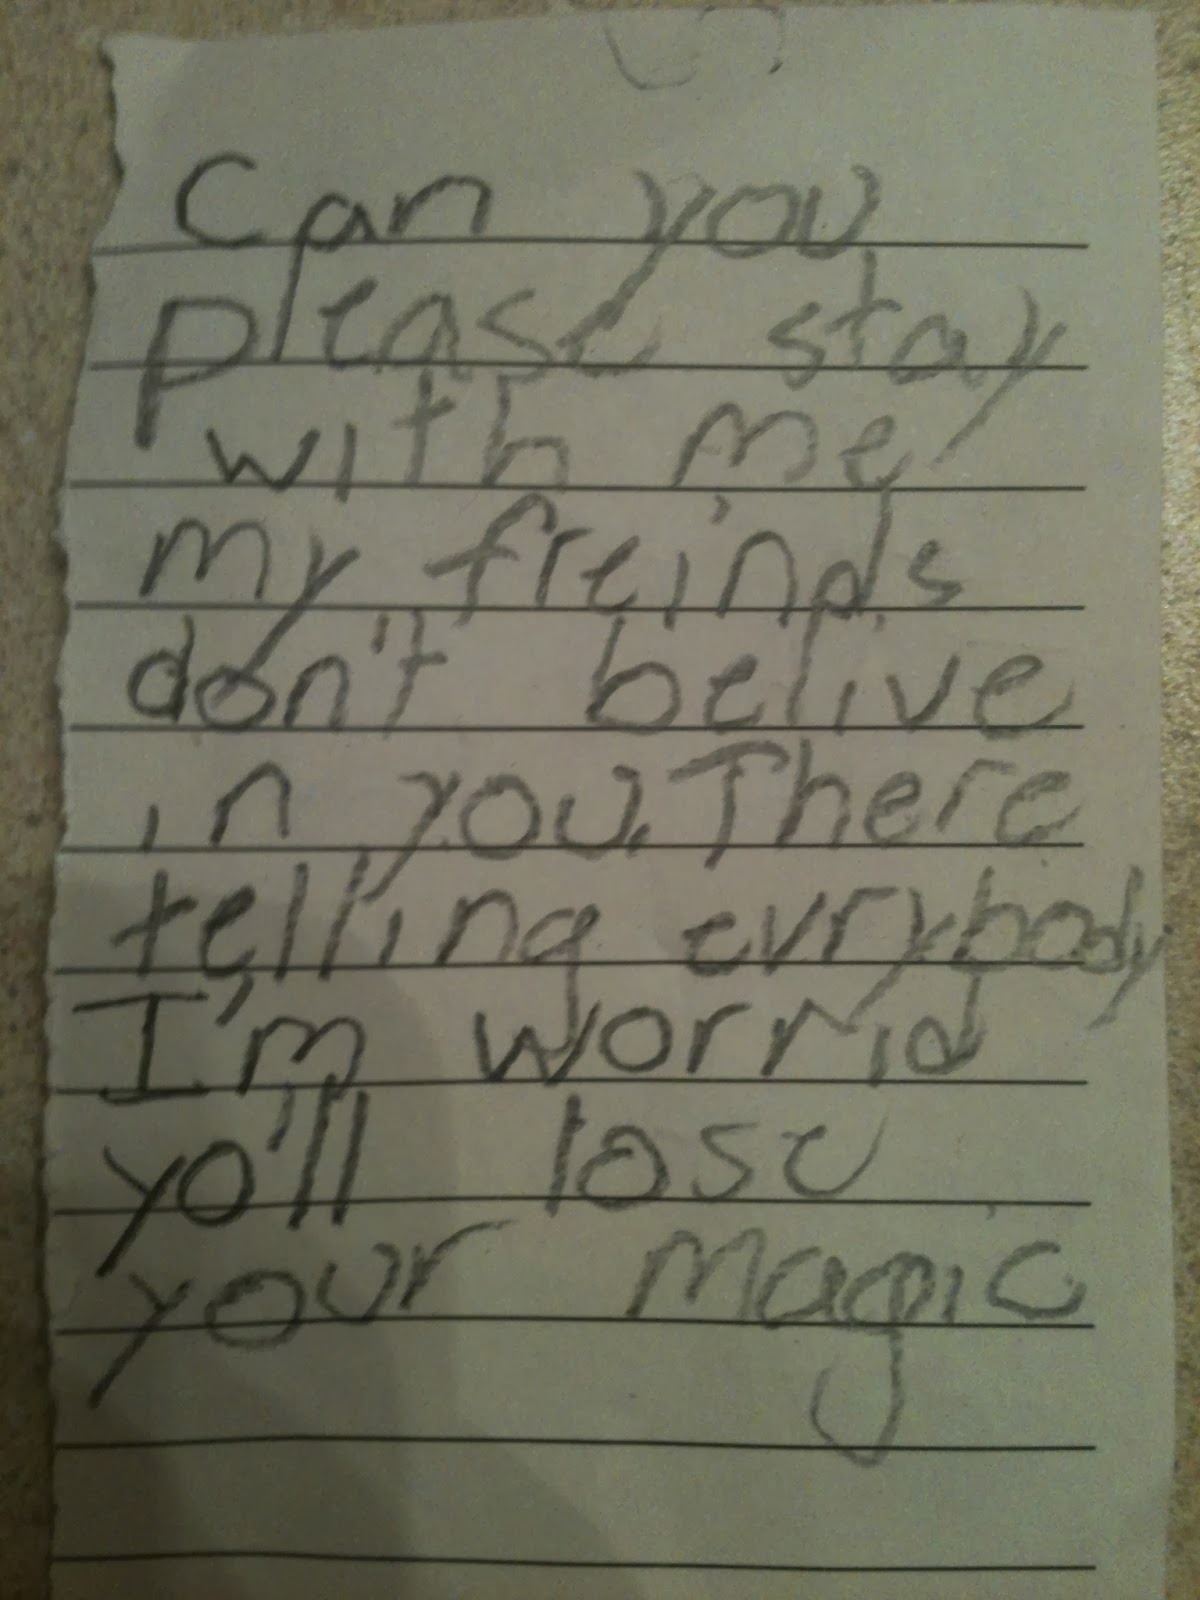 Can you
please stay
with me
my freinds
don't belive
in you. There
telling evrybody
I'm worrid
yo'll lose
your magic